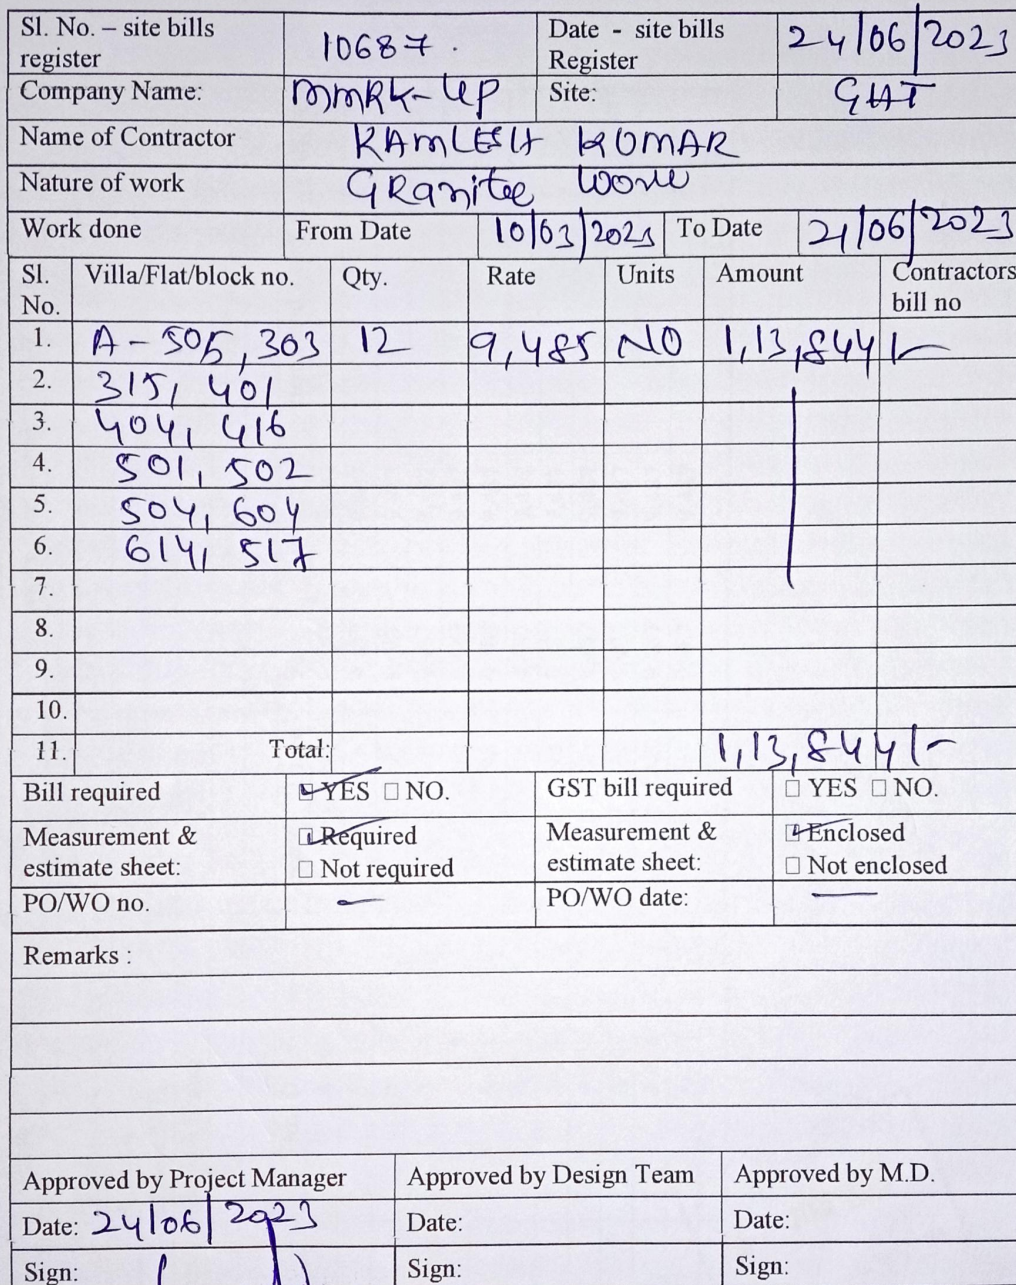 Sl. No. – site bills register 10687. Date - site bills Register 24/06/2023
Company Name: MMRK-UP Site: GHT
Name of Contractor KAMLESH KUMAR
Nature of work GRanitee work
Work done From Date 10/03/2023 To Date 21/06/2023
Sl. No. Villa/Flat/block no. Qty. Rate Units Amount Contractors bill no
1. A - 505, 303 12 9,485 NO 1,13,844/-
2. 315, 401
3. 404, 416
4. 501, 502
5. 504, 604
6. 614, 517
7.
8.
9.
10.
11. Total: 1,13,844/-
Bill required ☑ YES ☐ NO. GST bill required ☐ YES ☐ NO.
Measurement & estimate sheet: ☑ Required ☐ Not required Measurement & estimate sheet: ☑ Enclosed ☐ Not enclosed
PO/WO no. – PO/WO date:
Remarks :
Approved by Project Manager Approved by Design Team Approved by M.D.
Date: 24/06/2023 Date: Date:
Sign: Sign: Sign: